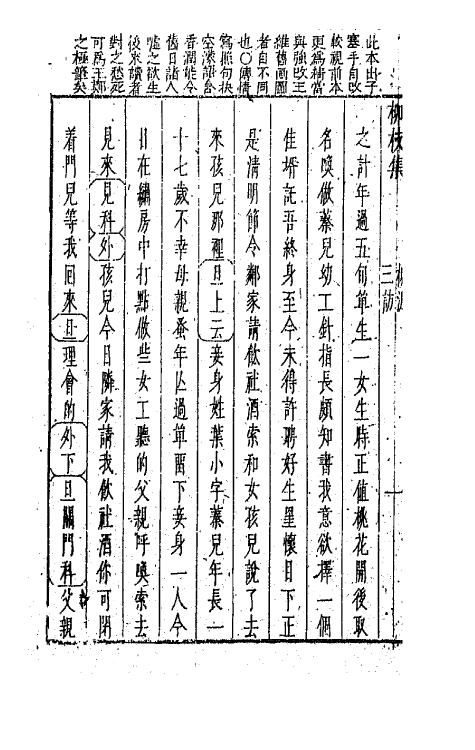 此本出子
塞手自改
較視前本
更爲精當
與強改王
維舊画圖
者自不同
也○傳情
寫照句抉
空濛語合
香潤能令
舊日諸人
嘘之欲生
後來讀者
對之愁死
可爲玉㙺
之極筆矣
柳枝集
三訪
一
之計年過五旬單生一女生時正值桃花開後取
名喚做蓁兒幼工針指長頗知書我意欲擇一個
佳婿託吾終身至今未得許聘好生罣懷目下正
是清明節令鄰家請飲社酒索和女孩兒說了去
來孩兒那裡旦上云妾身姓葉小字蓁兒年長一
十七歲不幸母親蚤年亾過單畱下妾身一人今
日在繡房中打點做些女工聽的父親呼喚索去
見來見科外孩兒今日隣家請我飲社酒你可閉
着門兒等我回來旦理會的外下旦關門科父親